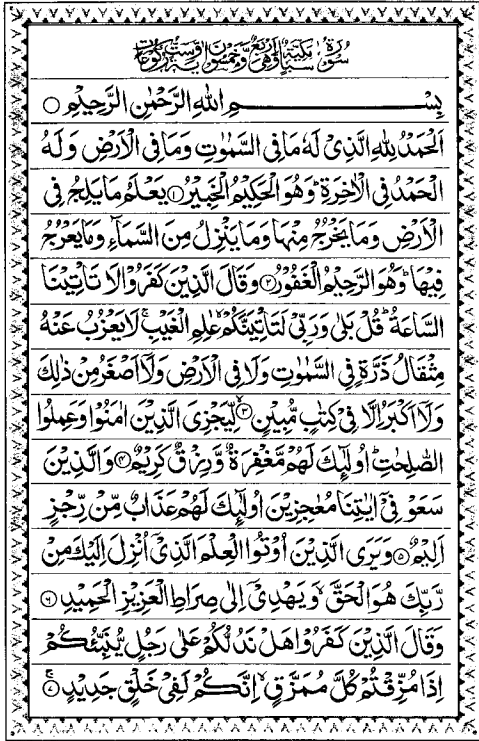 سُوْرَةُ سَبَاٍ مَكِّيَّةٌ وَّهِىَ اَرْبَعٌ وَّخَمْسُوْنَ اٰيَةً وَّسِتُّ رُكُوْعَاتٍ
بِسْمِ اللهِ الرَّحْمٰنِ الرَّحِيْمِ ○
اَلْحَمْدُ لِلهِ الَّذِىْ لَهٗ مَا فِى السَّمٰوٰتِ وَمَا فِى الْاَرْضِ وَلَهُ
الْحَمْدُ فِى الْاٰخِرَةِ ؕ وَهُوَ الْحَكِيْمُ الْخَبِيْرُ ﴿۱﴾ يَعْلَمُ مَا يَلِجُ فِى
الْاَرْضِ وَمَا يَخْرُجُ مِنْهَا وَمَا يَنْزِلُ مِنَ السَّمَآءِ وَمَا يَعْرُجُ
فِيْهَا ؕ وَهُوَ الرَّحِيْمُ الْغَفُوْرُ ﴿۲﴾ وَقَالَ الَّذِيْنَ كَفَرُوْا لَا تَاْتِيْنَا
السَّاعَةُ ؕ قُلْ بَلٰى وَرَبِّىْ لَتَاْتِيَنَّكُمْ ۙ عٰلِمِ الْغَيْبِ ۚ لَا يَعْزُبُ عَنْهُ
مِثْقَالُ ذَرَّةٍ فِى السَّمٰوٰتِ وَلَا فِى الْاَرْضِ وَلَاۤ اَصْغَرُ مِنْ ذٰلِكَ
وَلَاۤ اَكْبَرُ اِلَّا فِىْ كِتٰبٍ مُّبِيْنٍ ﴿۳﴾ لِّيَجْزِىَ الَّذِيْنَ اٰمَنُوْا وَعَمِلُوا
الصّٰلِحٰتِ ؕ اُولٰٓئِكَ لَهُمْ مَّغْفِرَةٌ وَّرِزْقٌ كَرِيْمٌ ﴿۴﴾ وَالَّذِيْنَ
سَعَوْ فِىْۤ اٰيٰتِنَا مُعٰجِزِيْنَ اُولٰٓئِكَ لَهُمْ عَذَابٌ مِّنْ رِّجْزٍ
اَلِيْمٌ ﴿۵﴾ وَيَرَى الَّذِيْنَ اُوْتُوا الْعِلْمَ الَّذِىْۤ اُنْزِلَ اِلَيْكَ مِنْ
رَّبِّكَ هُوَ الْحَقَّ ۙ وَيَهْدِىْۤ اِلٰى صِرَاطِ الْعَزِيْزِ الْحَمِيْدِ ﴿۶﴾
وَقَالَ الَّذِيْنَ كَفَرُوْا هَلْ نَدُلُّكُمْ عَلٰى رَجُلٍ يُّنَبِّئُكُمْ
اِذَا مُزِّقْتُمْ كُلَّ مُمَزَّقٍ ۙ اِنَّكُمْ لَفِىْ خَلْقٍ جَدِيْدٍ ﴿۷﴾ ۚ